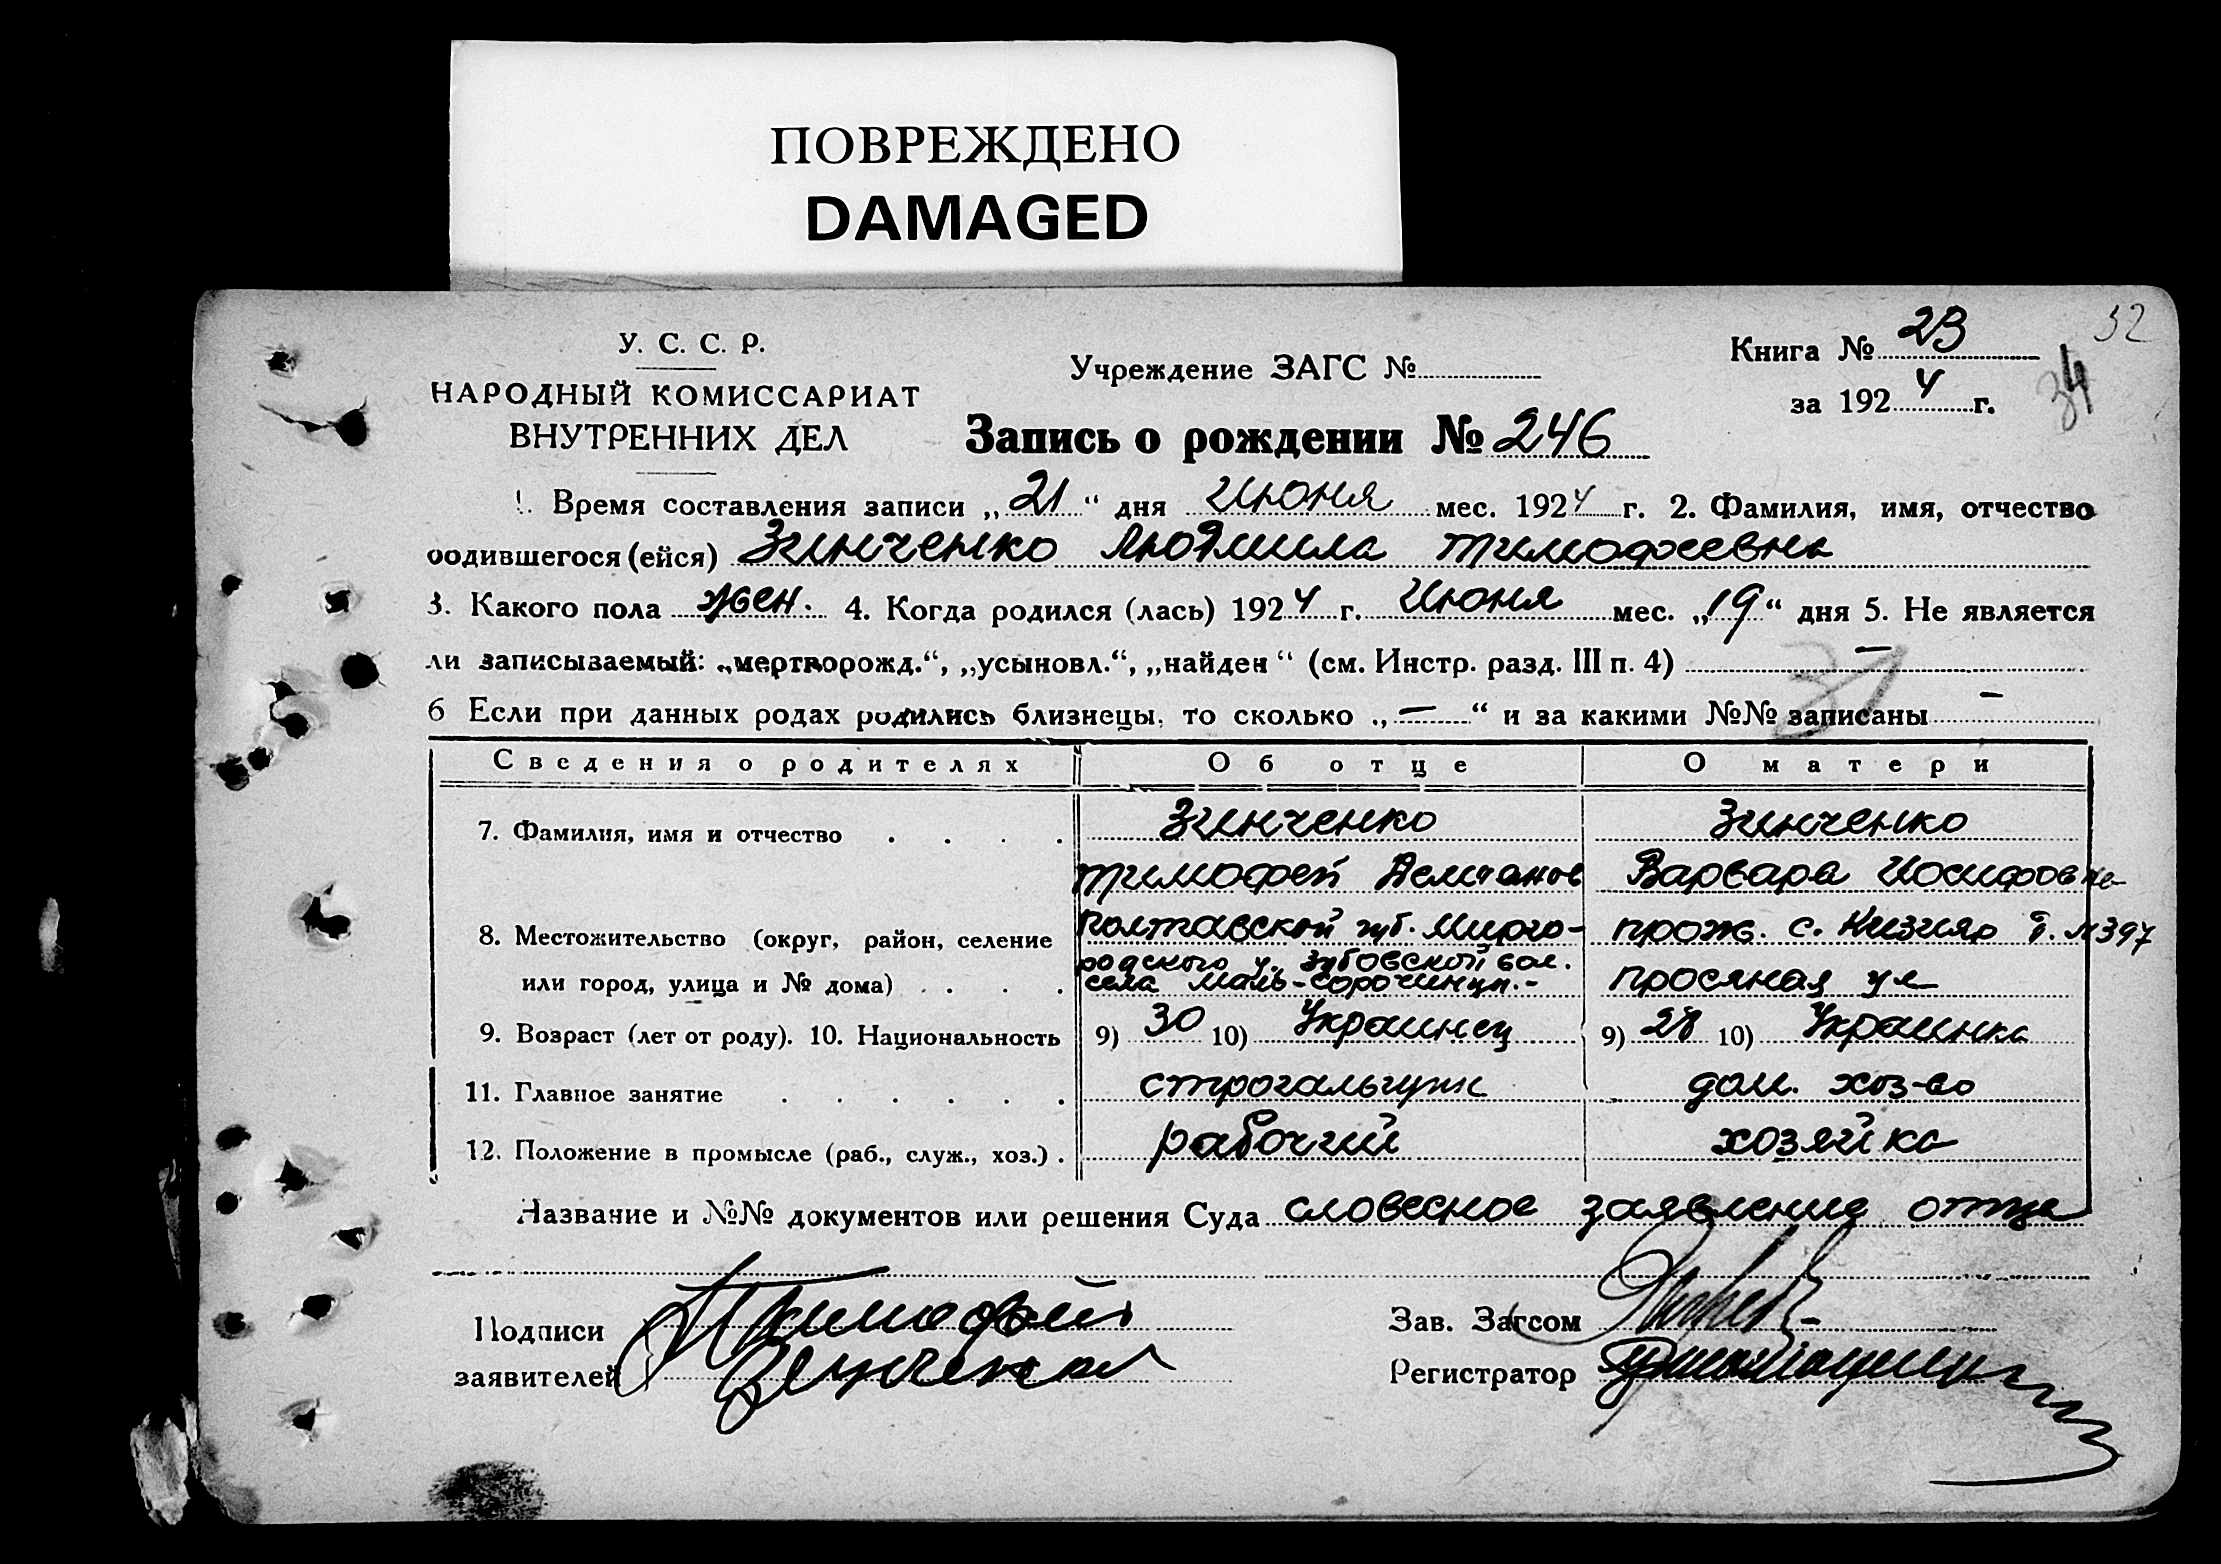 ПОВРЕЖДЕНО
DAMAGED
32
У. С. С. Р.
НАРОДНЫЙ КОМИССАРИАТ
ВНУТРЕННИХ ДЕЛ
Учреждение ЗАГС №
Книга № 23
за 1924 г.
34
Запись о рождении № 246
1. Время составления записи „21“ дня Июня мес. 1924 г. 2. Фамилия, имя, отчество
родившегося (ейся) Зинченко Людмила Тимофеевна
3. Какого пола жен. 4. Когда родился (лась) 1924 г. Июня мес. „19“ дня 5. Не является
ли записываемый: „мертворожд.“, „усыновл.“, „найден“ (см. Инстр. разд. III п. 4) —
31
6 Если при данных родах родились близнецы, то сколько „—“ и за какими №№ записаны —
Сведения о родителях Об отце О матери
7. Фамилия, имя и отчество . . . . Зинченко Зинченко
Тимофей Варвара Иосифовна
8. Местожительство (округ, район, селение Полтавской губ. Мирго- прож. с. Кизияр д. №397
или город, улица и № дома) . . . . родского у. Зубовской вол. села Мало-Сорочинцы.- Просяная ул
9. Возраст (лет от роду). 10. Национальность 9) 30 10) Украинец 9) 28 10) Украинка
11. Главное занятие . . . . . . строгальщик дом. хоз-во
12. Положение в промысле (раб., служ., хоз.) . рабочий хозяйка
Название и №№ документов или решения Суда словесное заявление отца
Подписи Тимофей
заявителей Зинченко
Зав. Загсом
Регистратор